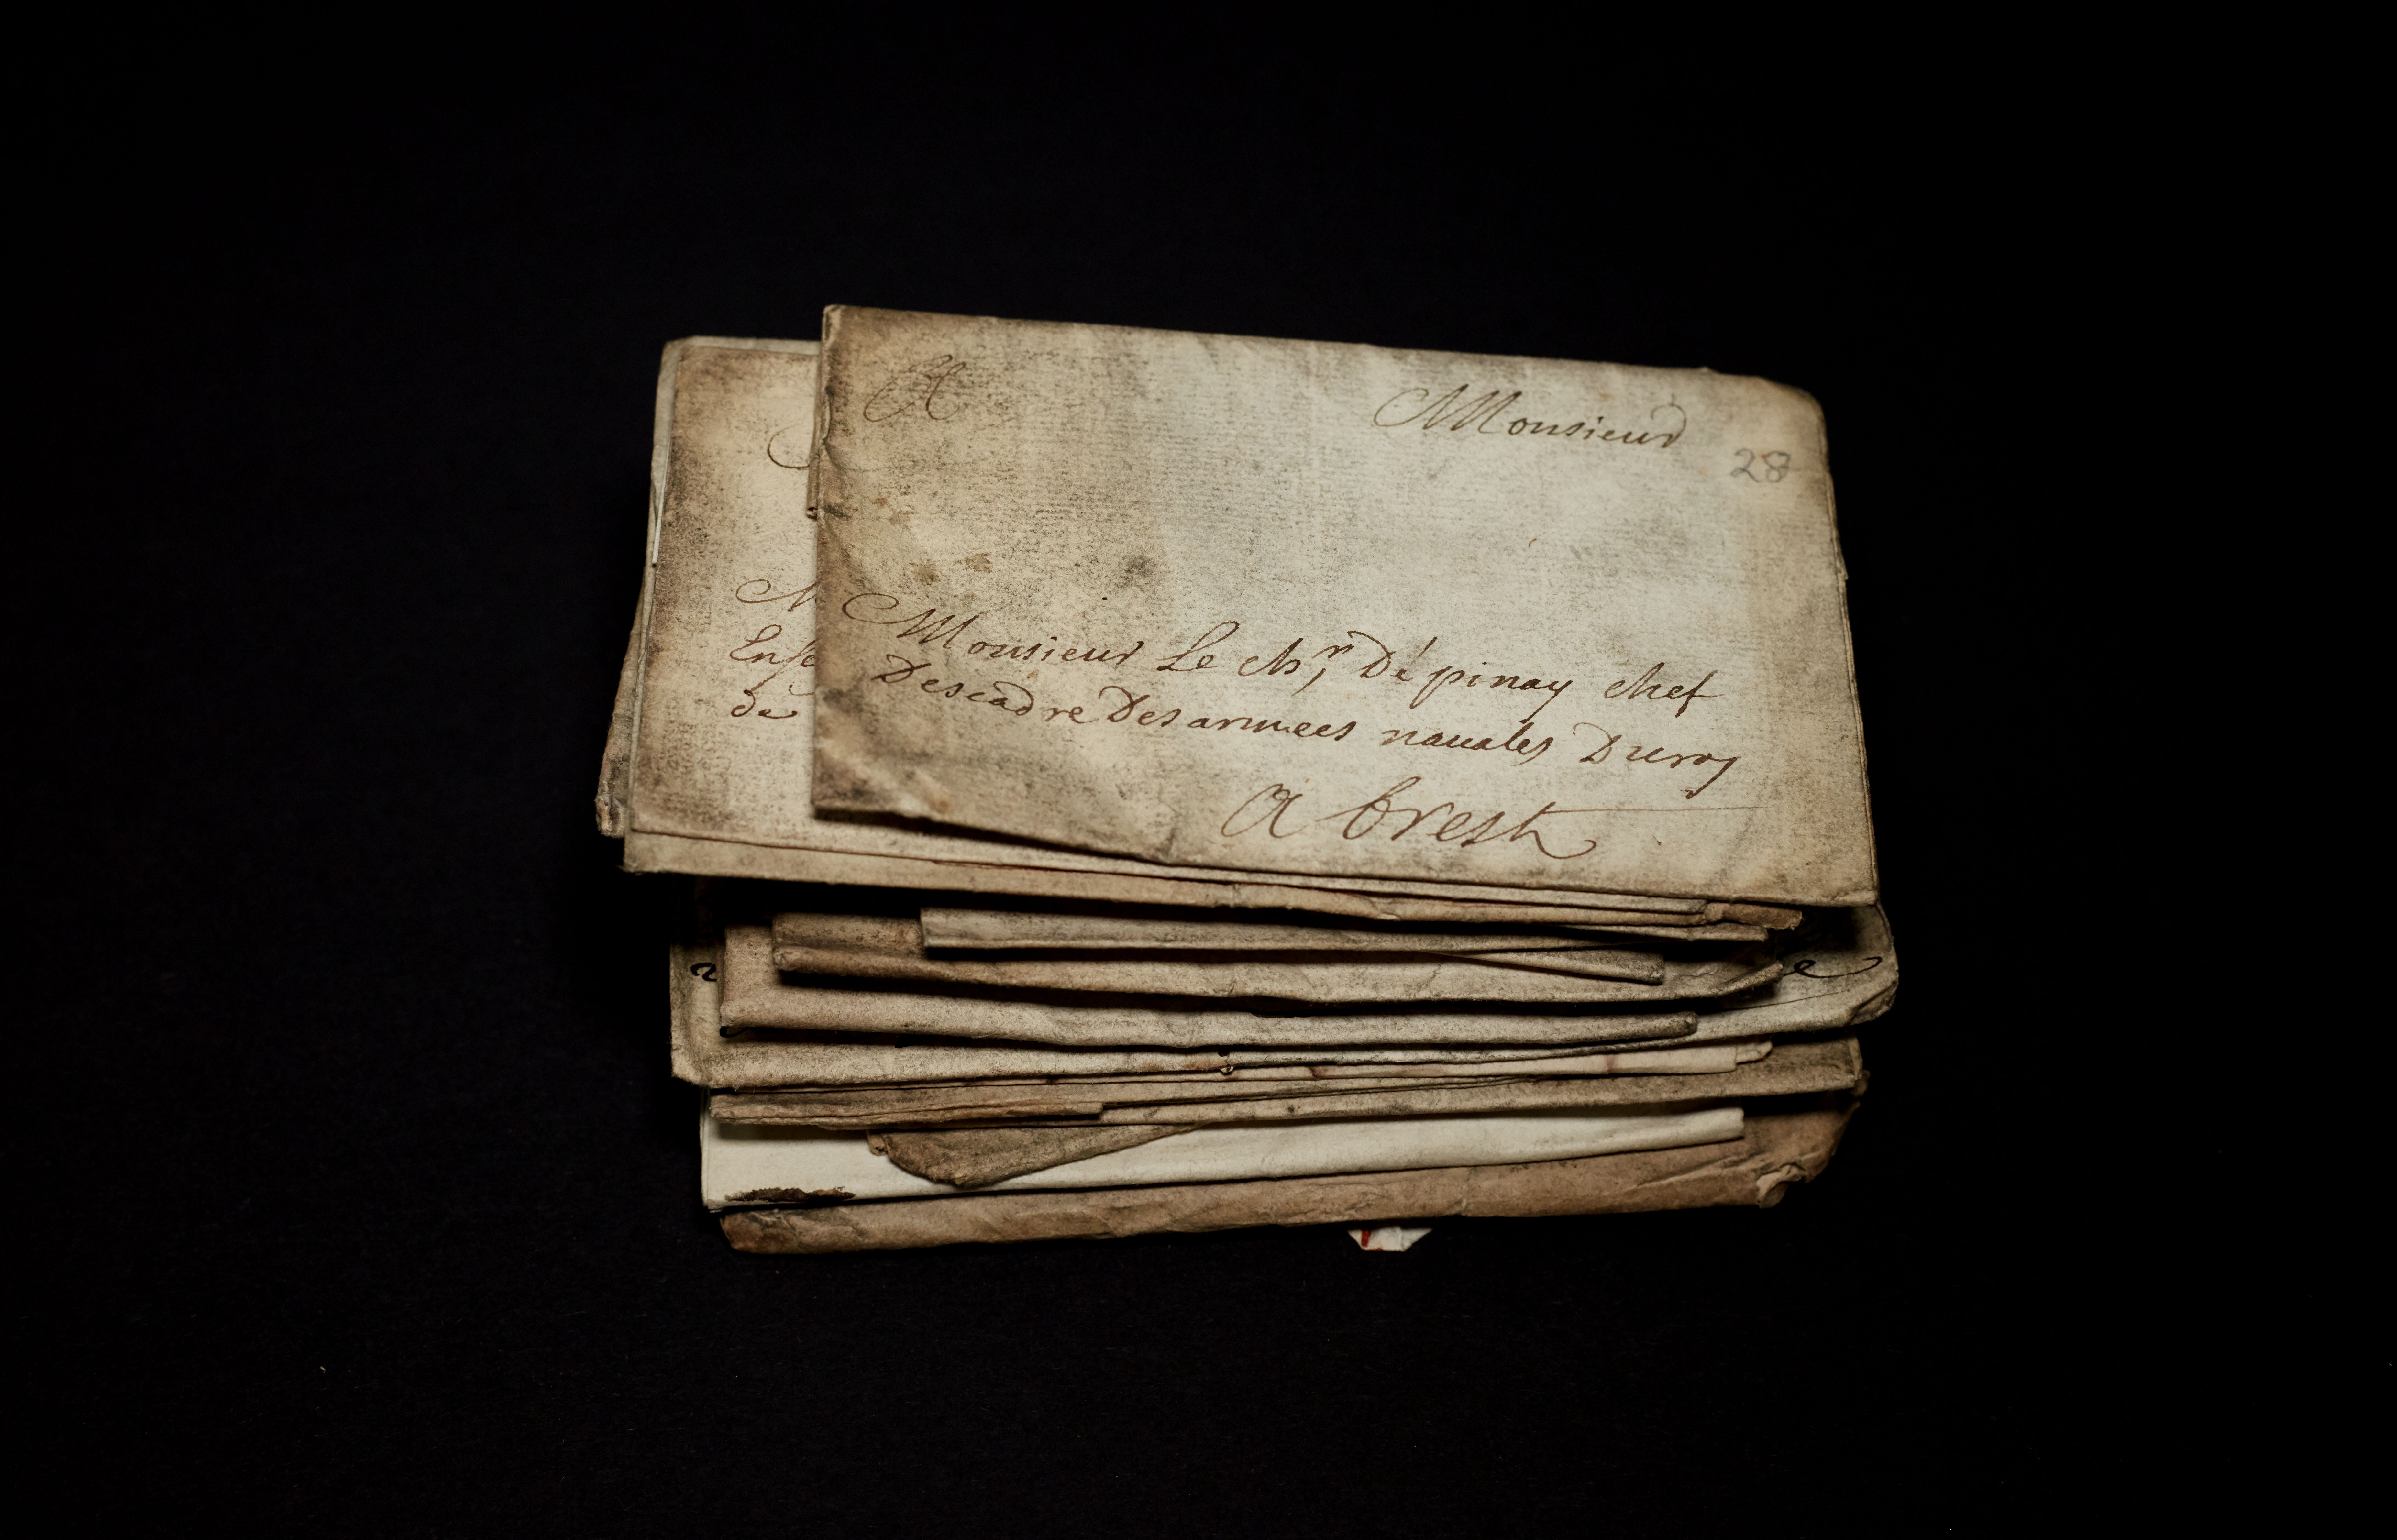 A
Monsieur
28
Monsieur Le chr, Dépinay chef
Descadre Des armees nauales Duroy
a brest
Ense
de